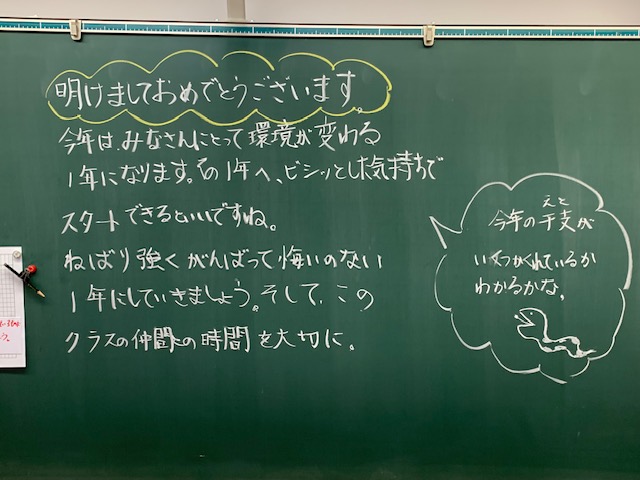 明けましておめでとうございます。
今年は、みなさんにとって環境が変わる
1年になります。その1年へ、ビシッとした気持ちで
スタートできるといいですね。
ねばり強くがんばって悔いのない
1年にしていきましょう。そして、この
クラスの仲間との時間を大切に。
えと
今年の干支が
いくつかくれているか
わかるかな。